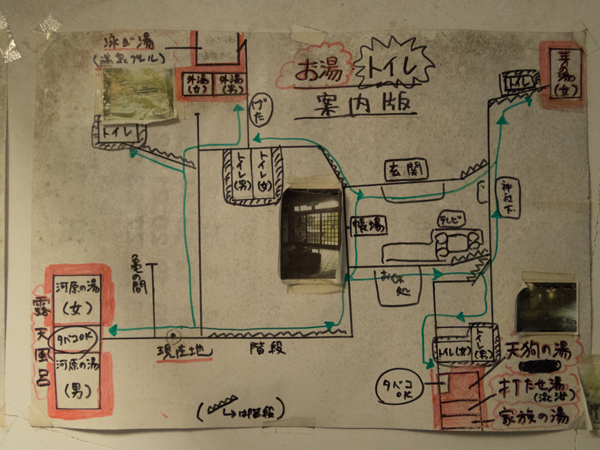 泳ぎ湯
(温泉プール)
外湯
(女)
外湯
(男)
お湯
トイレ
案内版
げた
トイレ
芽の湯
(女)
トイレ
トイレ(男)
トイレ(女)
玄関
神社下
帳場
テレビ
お休処
亀の間
河原の湯
(女)
露天風呂
タバコOK
河原の湯
(男)
現在地
階段
トイレ(女)
トイレ(男)
天狗の湯
タバコ
OK
打たせ湯
(混浴)
家族の湯
(は階段)